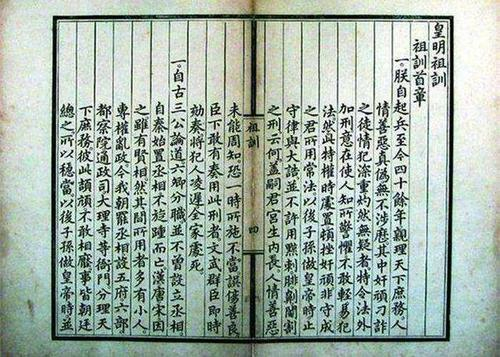 皇明祖訓
祖訓首章
一。朕自起兵至今四十餘年親理天下庶務人
情善惡真偽無不涉歷其中奸頑刁詐
之徒情犯深重灼然無疑者特令法外
加刑意在使人知所警懼不敢輕易犯
法然此特權時處置頓挫奸頑非守成
之君所用常法以後子孫做皇帝時止
守律與大誥並不許用黥刺腓劓閹割
之刑云何蓋嗣君宮生內長人情善惡
祖訓
四
未能周知恐一時所施不當誤傷善良
臣下敢有奏用此刑者文武群臣即時
劾奏將犯人凌遲全家處死
一。自古三公論道六卿分職並不曾設立丞相
自秦始置丞相不旋踵而亡漢唐宋因
之雖有賢相然其間所用者多有小人
專權亂政今我朝罷丞相設五府六部
都察院通政司大理寺等衙門分理天
下庶務彼此頡頏不敢相壓事皆朝廷
總之所以穩當以後子孫做皇帝時並